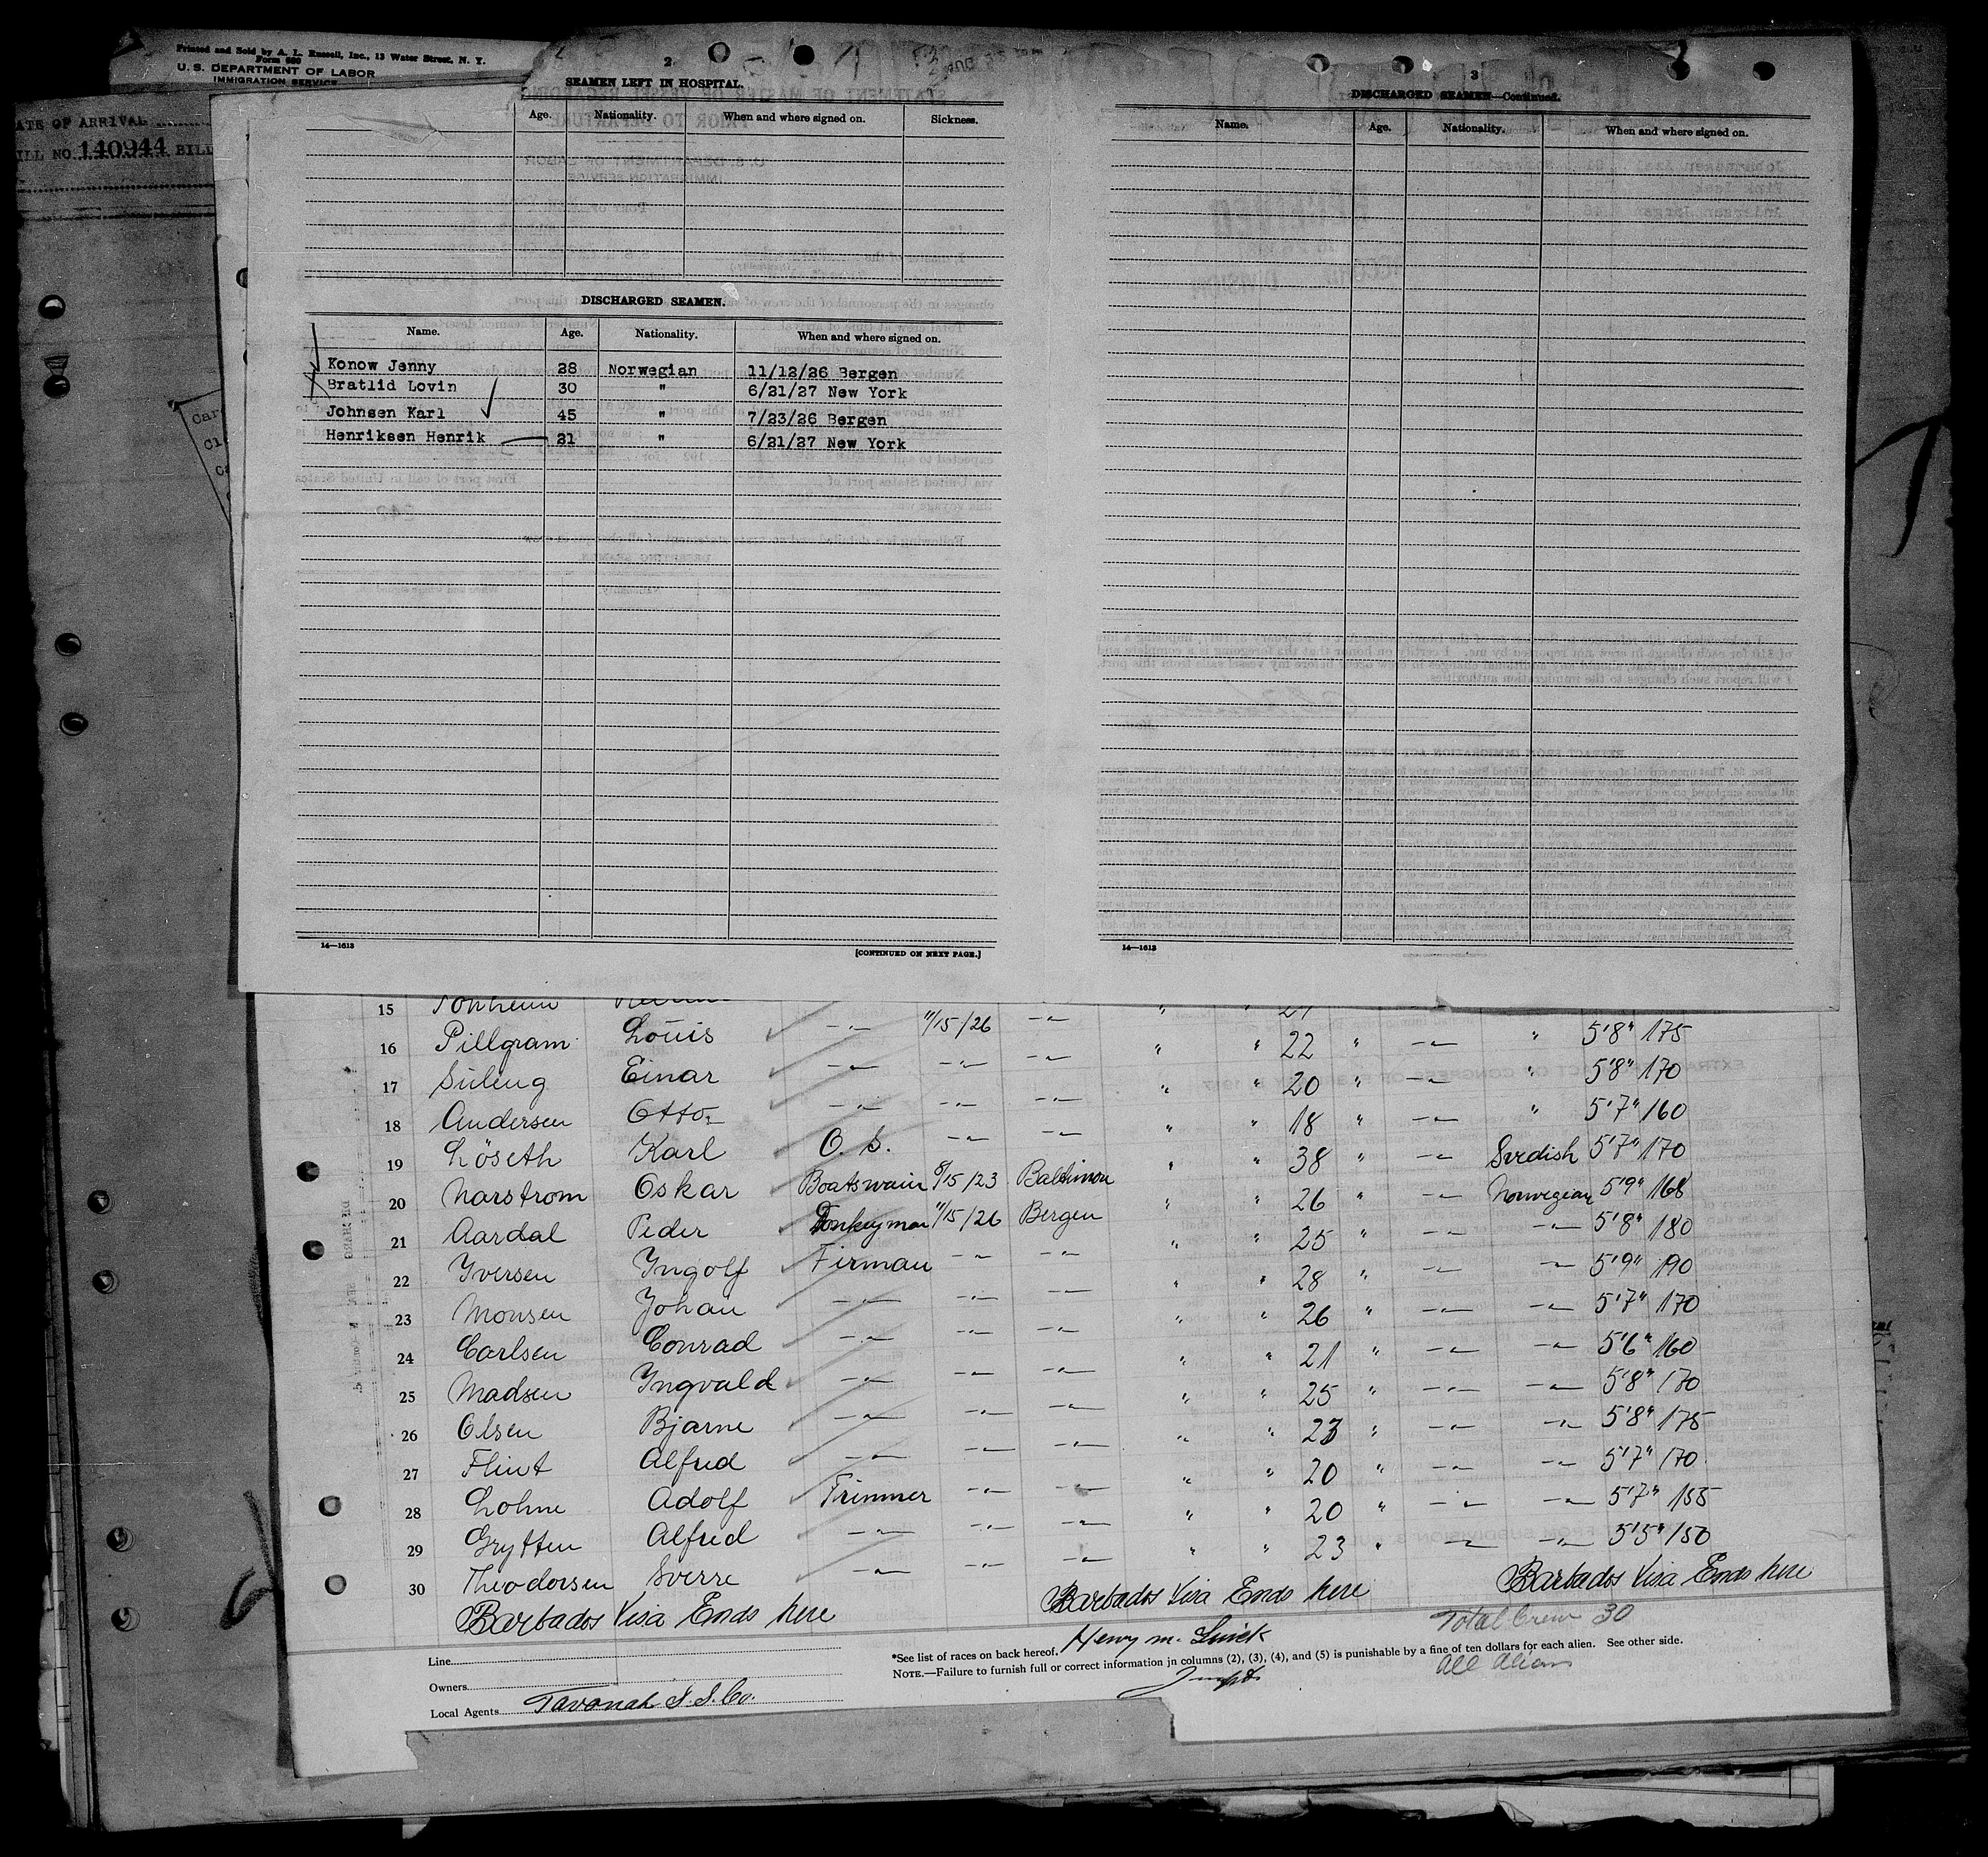 Printed and Sold by A. L. Russell, Inc., 13 Water Street, N. Y.
Form 680
U. S. DEPARTMENT OF LABOR
IMMIGRATION SERVICE
ATE OF ARRIVAL
ILL NO. 140944 BILL
2
SEAMEN LEFT IN HOSPITAL.
Age. Nationality. When and where signed on. Sickness.
DISCHARGED SEAMEN.
Name. Age. Nationality. When and where signed on.
Konow Jenny 28 Norwegian 11/12/26 Bergen
Bratlid Lovin 30 " 6/21/27 New York
Johnsen Karl 45 " 7/23/26 Bergen
Henriksen Henrik 21 " 6/21/27 New York
14—1613
[CONTINUED ON NEXT PAGE.]
3
DISCHARGED SEAMEN—Continued.
Name. Age. Nationality. When and where signed on.
14—1613
15 Tonheim 21
16 Pillgram Louis —"— 11/15/26 —"— " " 22 " —"— " 5'8" 175
17 Einar —"— —"— —"— " " 20 " —"— " 5'8" 170
18 Andersen Otto —"— —"— —"— " " 18 " —"— " 5'7" 160
19 Löseth Karl O. S. —"— —"— " " 38 " —"— Svedish 5'7" 170
20 Narstrom Oskar Boatswain 15/23 Baltimore " " 26 " —"— Norwegian 5'9" 168
21 Aardal Peder Donkeyman 11/15/26 Bergen " " 25 " —"— —"— 5'8" 180
22 Iversen Ingolf Firman —"— —"— " " 28 " —"— —"— 5'9" 190
23 Monsen Johan —"— —"— —"— " " 26 " —"— —"— 5'7" 170
24 Carlsen Conrad —"— —"— —"— " " 21 " —"— —"— 5'6" 160
25 Madsen Ingvald —"— —"— —"— " " 25 " —"— —"— 5'8" 170
26 Olsen Bjarne —"— —"— —"— " " 23 " —"— —"— 5'8" 175
27 Flint Alfred —"— —"— —"— " " 20 " —"— —"— 5'7" 170
28 Lohne Adolf Trimmer —"— —"— " " 20 " —"— —"— 5'7" 155
29 Grytten Alfred —"— —"— —"— " " 23 " —"— —"— 5'5" 150
30 Theodorsen Sverre —"— —"— —"—
Barbados Visa Ends here Barbados Visa Ends here Barbados Visa Ends here
Total Crew 30
All Aliens
Line
Owners
Local Agents Tavonah S. S. Co.
*See list of races on back hereof. Henry M.
NOTE.—Failure to furnish full or correct information in columns (2), (3), (4), and (5) is punishable by a fine of ten dollars for each alien. See other side.